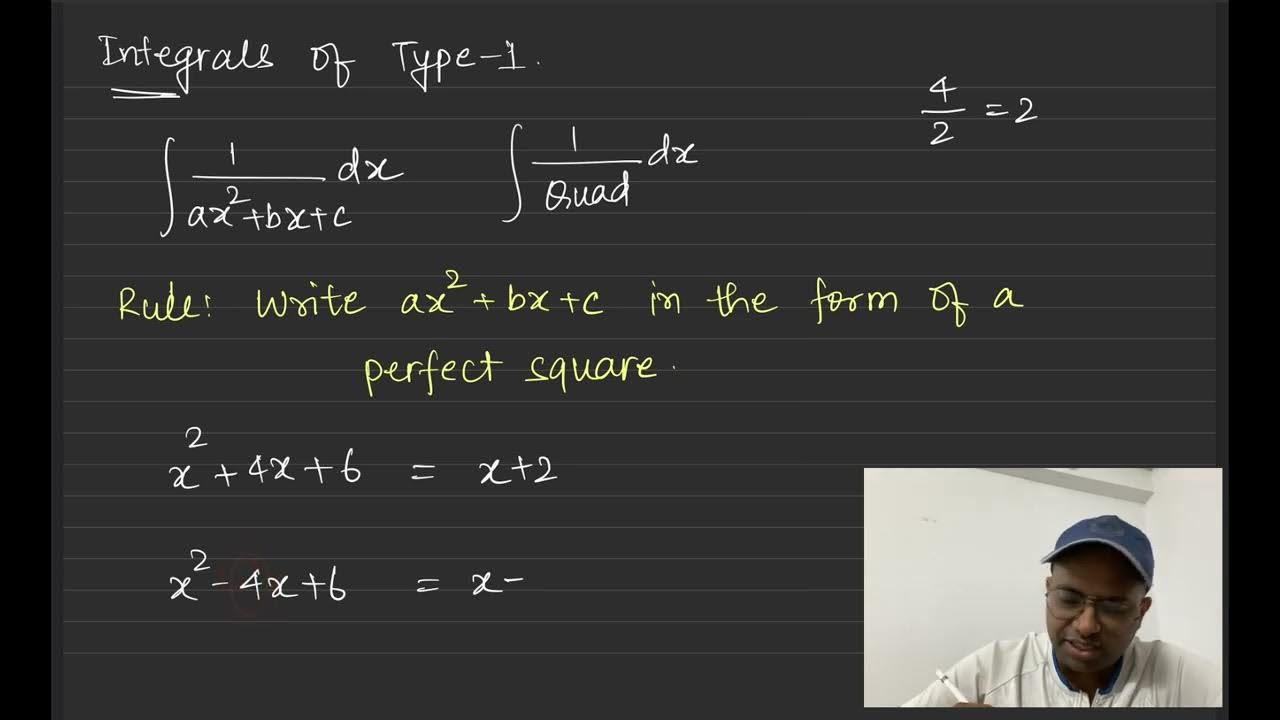 Integrals of Type-1.
4/2 = 2
∫ 1/(ax²+bx+c) dx   ∫ 1/Quad dx
Rule: Write ax²+bx+c in the form of a
perfect square.
x²+4x+6 = x+2
x²-4x+6 = x-